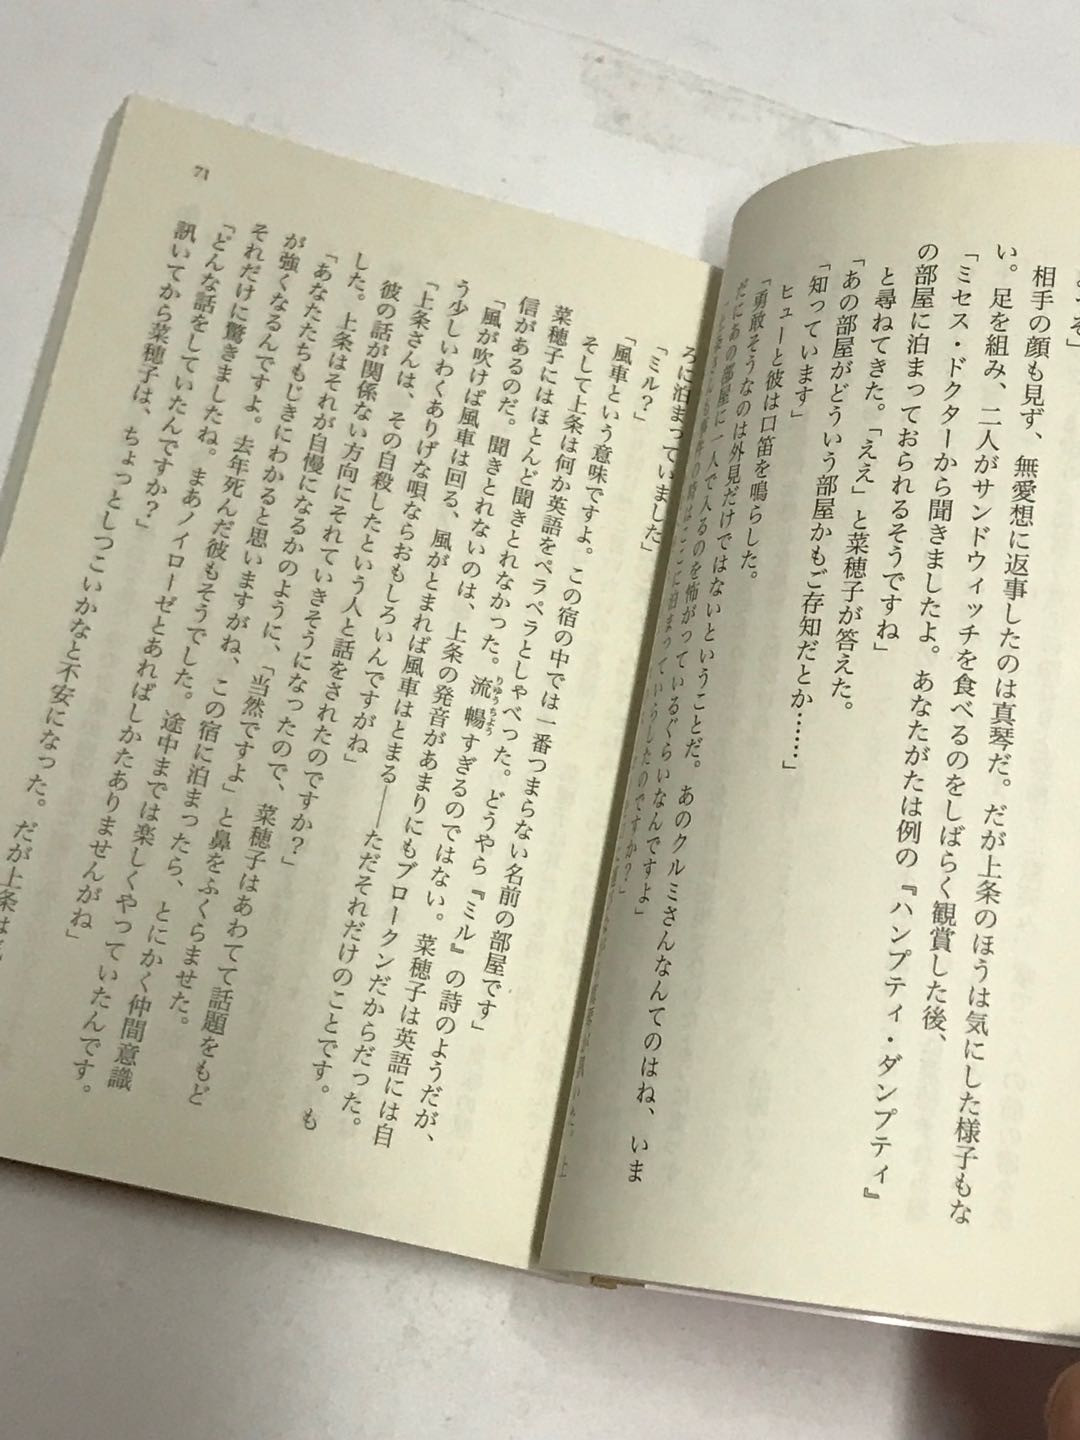 相手の顔も見ず、無愛想に返事したのは真琴だ。だが上条のほうは気にした様子もな
い。足を組み、二人がサンドウィッチを食べるのをしばらく観賞した後、
「ミセス・ドクターから聞きましたよ。あなたがたは例の『ハンプティ・ダンプティ』
の部屋に泊まっておられるそうですね」
と尋ねてきた。「ええ」と菜穂子が答えた。
「あの部屋がどういう部屋かもご存知だとか……」
「知っています」
ヒューと彼は口笛を鳴らした。
「勇敢そうなのは外見だけではないということだ。あのクルミさんなんてのはね、いま
だにあの部屋に一人で入るのを怖がっているぐらいなんですよ」
ろに泊まっていました」
「ミル?」
「風車という意味ですよ。この宿の中では一番つまらない名前の部屋です」
そして上条は何か英語をペラペラとしゃべった。どうやら『ミル』の詩のようだが、
菜穂子にはほとんど聞きとれなかった。流暢すぎるのではない。菜穂子は英語には自
信があるのだ。聞きとれないのは、上条の発音があまりにもブロークンだからだった。
「風が吹けば風車は回る、風がとまれば風車はとまる――ただそれだけのことです。も
う少しいわくありげな唄ならおもしろいんですがね」
「上条さんは、その自殺したという人と話をされたのですか?」
彼の話が関係ない方向にそれていきそうになったので、菜穂子はあわてて話題をもど
した。上条はそれが自慢になるかのように、「当然ですよ」と鼻をふくらませた。
「あなたたちもじきにわかると思いますがね、この宿に泊まったら、とにかく仲間意識
が強くなるんですよ。去年死んだ彼もそうでした。途中までは楽しくやっていたんです。
それだけに驚きましたね。まあノイローゼとあればしかたありませんがね」
「どんな話をしていたんですか?」
訊いてから菜穂子は、ちょっとしつこいかなと不安になった。だが上条は
71